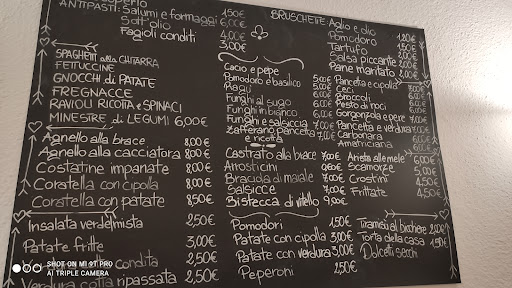 ANTIPASTI: Salumi e formaggi 6,00€
Sott'olio 4,00€
Fagioli conditi 3,00€
BRUSCHETTE: Aglio e olio
Pomodoro
Tartufo
Salsa piccante 2,00€
Pane maritato 2,00€
SPAGHETTI alla CHITARRA
FETTUCCINE
GNOCCHI di PATATE
FREGNACCE
RAVIOLI RICOTTA e SPINACI
MINESTRE di LEGUMI 6,00€
Cacio e pepe
Pomodoro e basilico
Ragù
Funghi al sugo
Funghi in bianco
Funghi e salsiccia
Zafferano pancetta
e ricotta
Pancetta e cipolla
Ceci
Broccoli
Pesto di noci
Gorgonzola e pere
Pancetta e verdura
Carbonara
Amatriciana
Agnello alla brace 8,00€
Agnello alla cacciatora 8,00€
Costatine impanate 8,00€
Coratella con cipolla 8,00€
Coratella con patate 8,50€
Castrato alla brace 7,00€
Arrosticini
Braciola di maiale
Salsicce
Bistecca di vitello 9,00€
Scamorze 5,00€
Crostini 4,50€
Frittate 4,50€
Insalata verde/mista 2,50€
Patate fritte 3,00€
condita 2,50€
cotta ripassata 2,50€
Pomodori 1,50€
Patate con cipolla 3,00€
Patate con verdura 3,00€
Peperoni 2,50€
Tiramisù al bicchiere 2,00€
Torta della casa 1,50€
Dolcetti secchi
SHOT ON MI 9T PRO
AI TRIPLE CAMERA